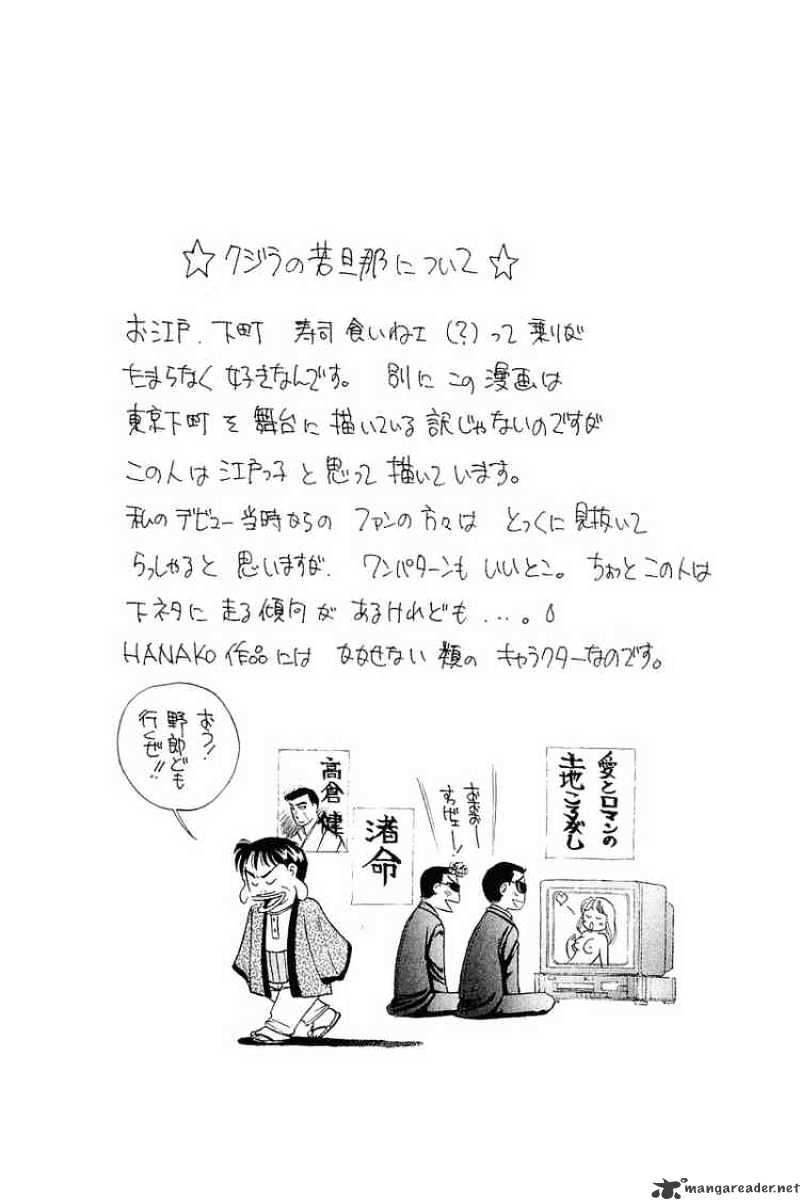 ☆クジラの若旦那について☆
お江戸、下町 寿司食いねェ(?)って乗りが
たまらなく好きなんです。 別にこの漫画は
東京下町を舞台に描いている訳じゃないのですが
この人は江戸っ子と思って描いています。
私のデビュー当時からの ファンの方々は とっくに見抜いて
らっしゃると思いますが、ワンパターンもいいとこ。ちょっとこの人は
下ネタに走る傾向があるけれども...。
HANAKO作品には なくせない類のキャラクターなのです。
おう!
野郎ども
行くぜ!!
高倉健
渚命
おおおー
すっげェー!
愛とロマンの
土地ころがし
mangareader.net